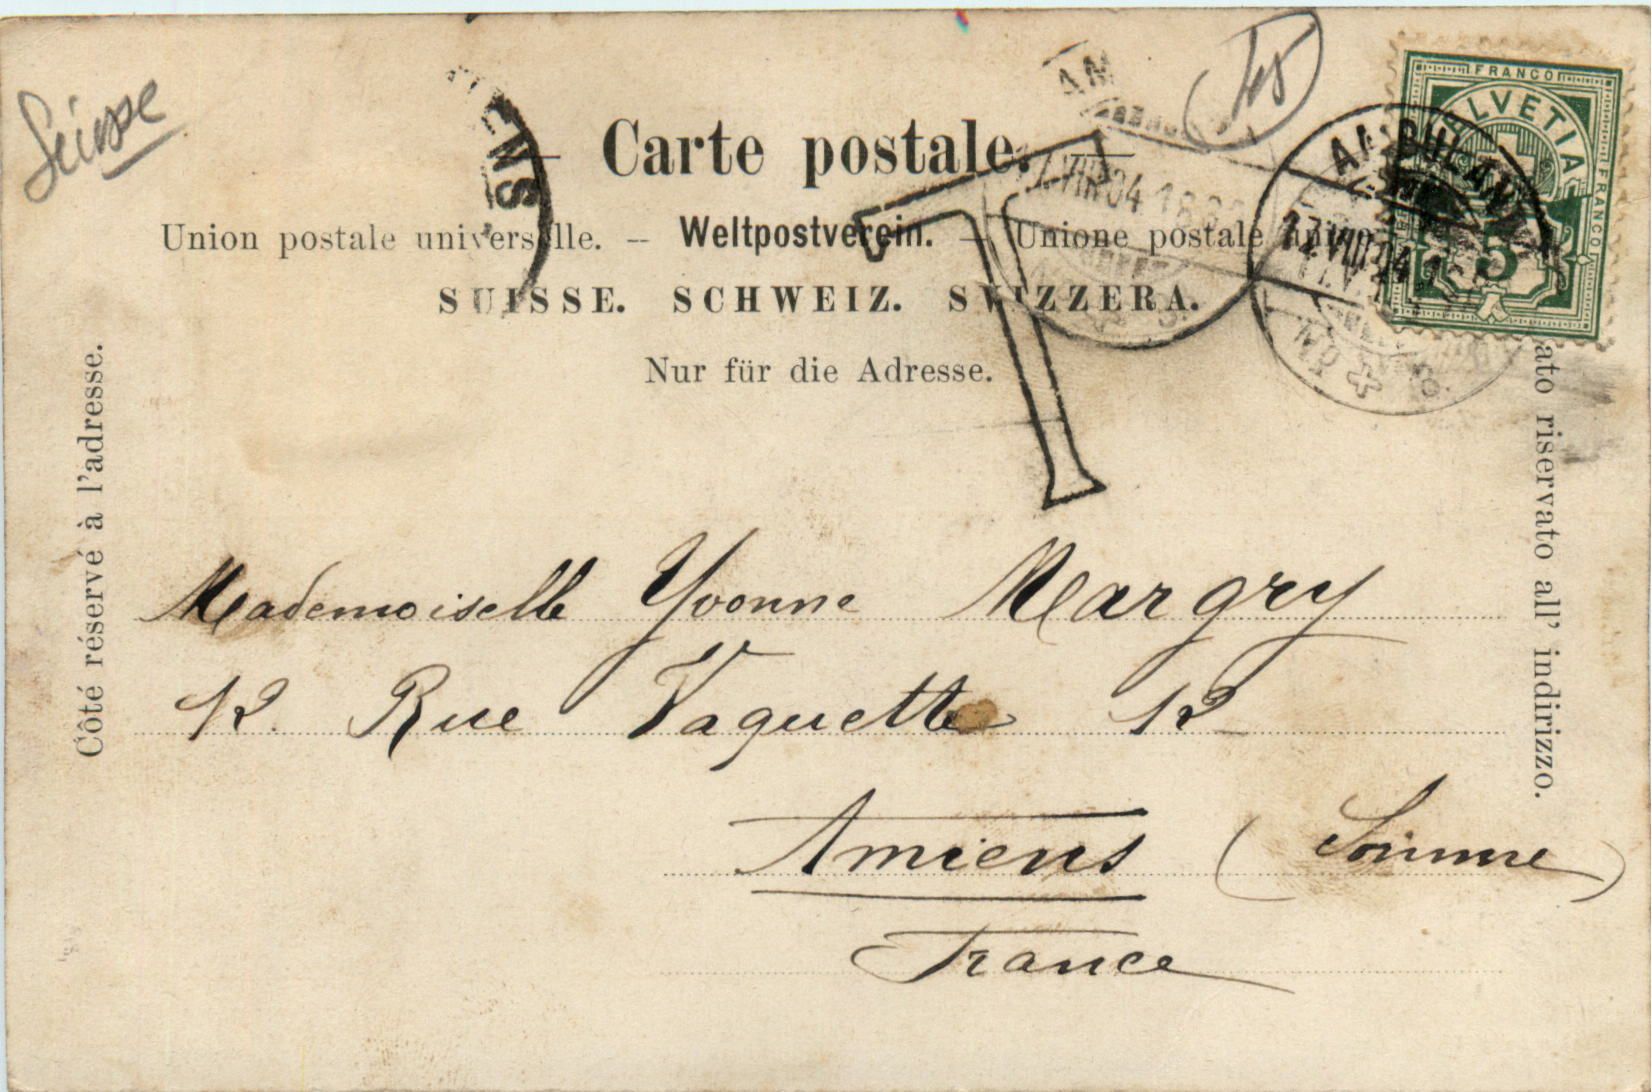 Suisse
Carte postale.
Union postale universelle. — Weltpostverein. — Unione postale
SUISSE. SCHWEIZ. SVIZZERA.
Nur für die Adresse.
Côté réservé à l'adresse.
riservato all' indirizzo.
FRANCO
HELVETIA
FRANCO
5
AMBULANT
T
Mademoiselle Yvonne Margry
12. Rue Vaquette 12
Amiens (Somme)
France